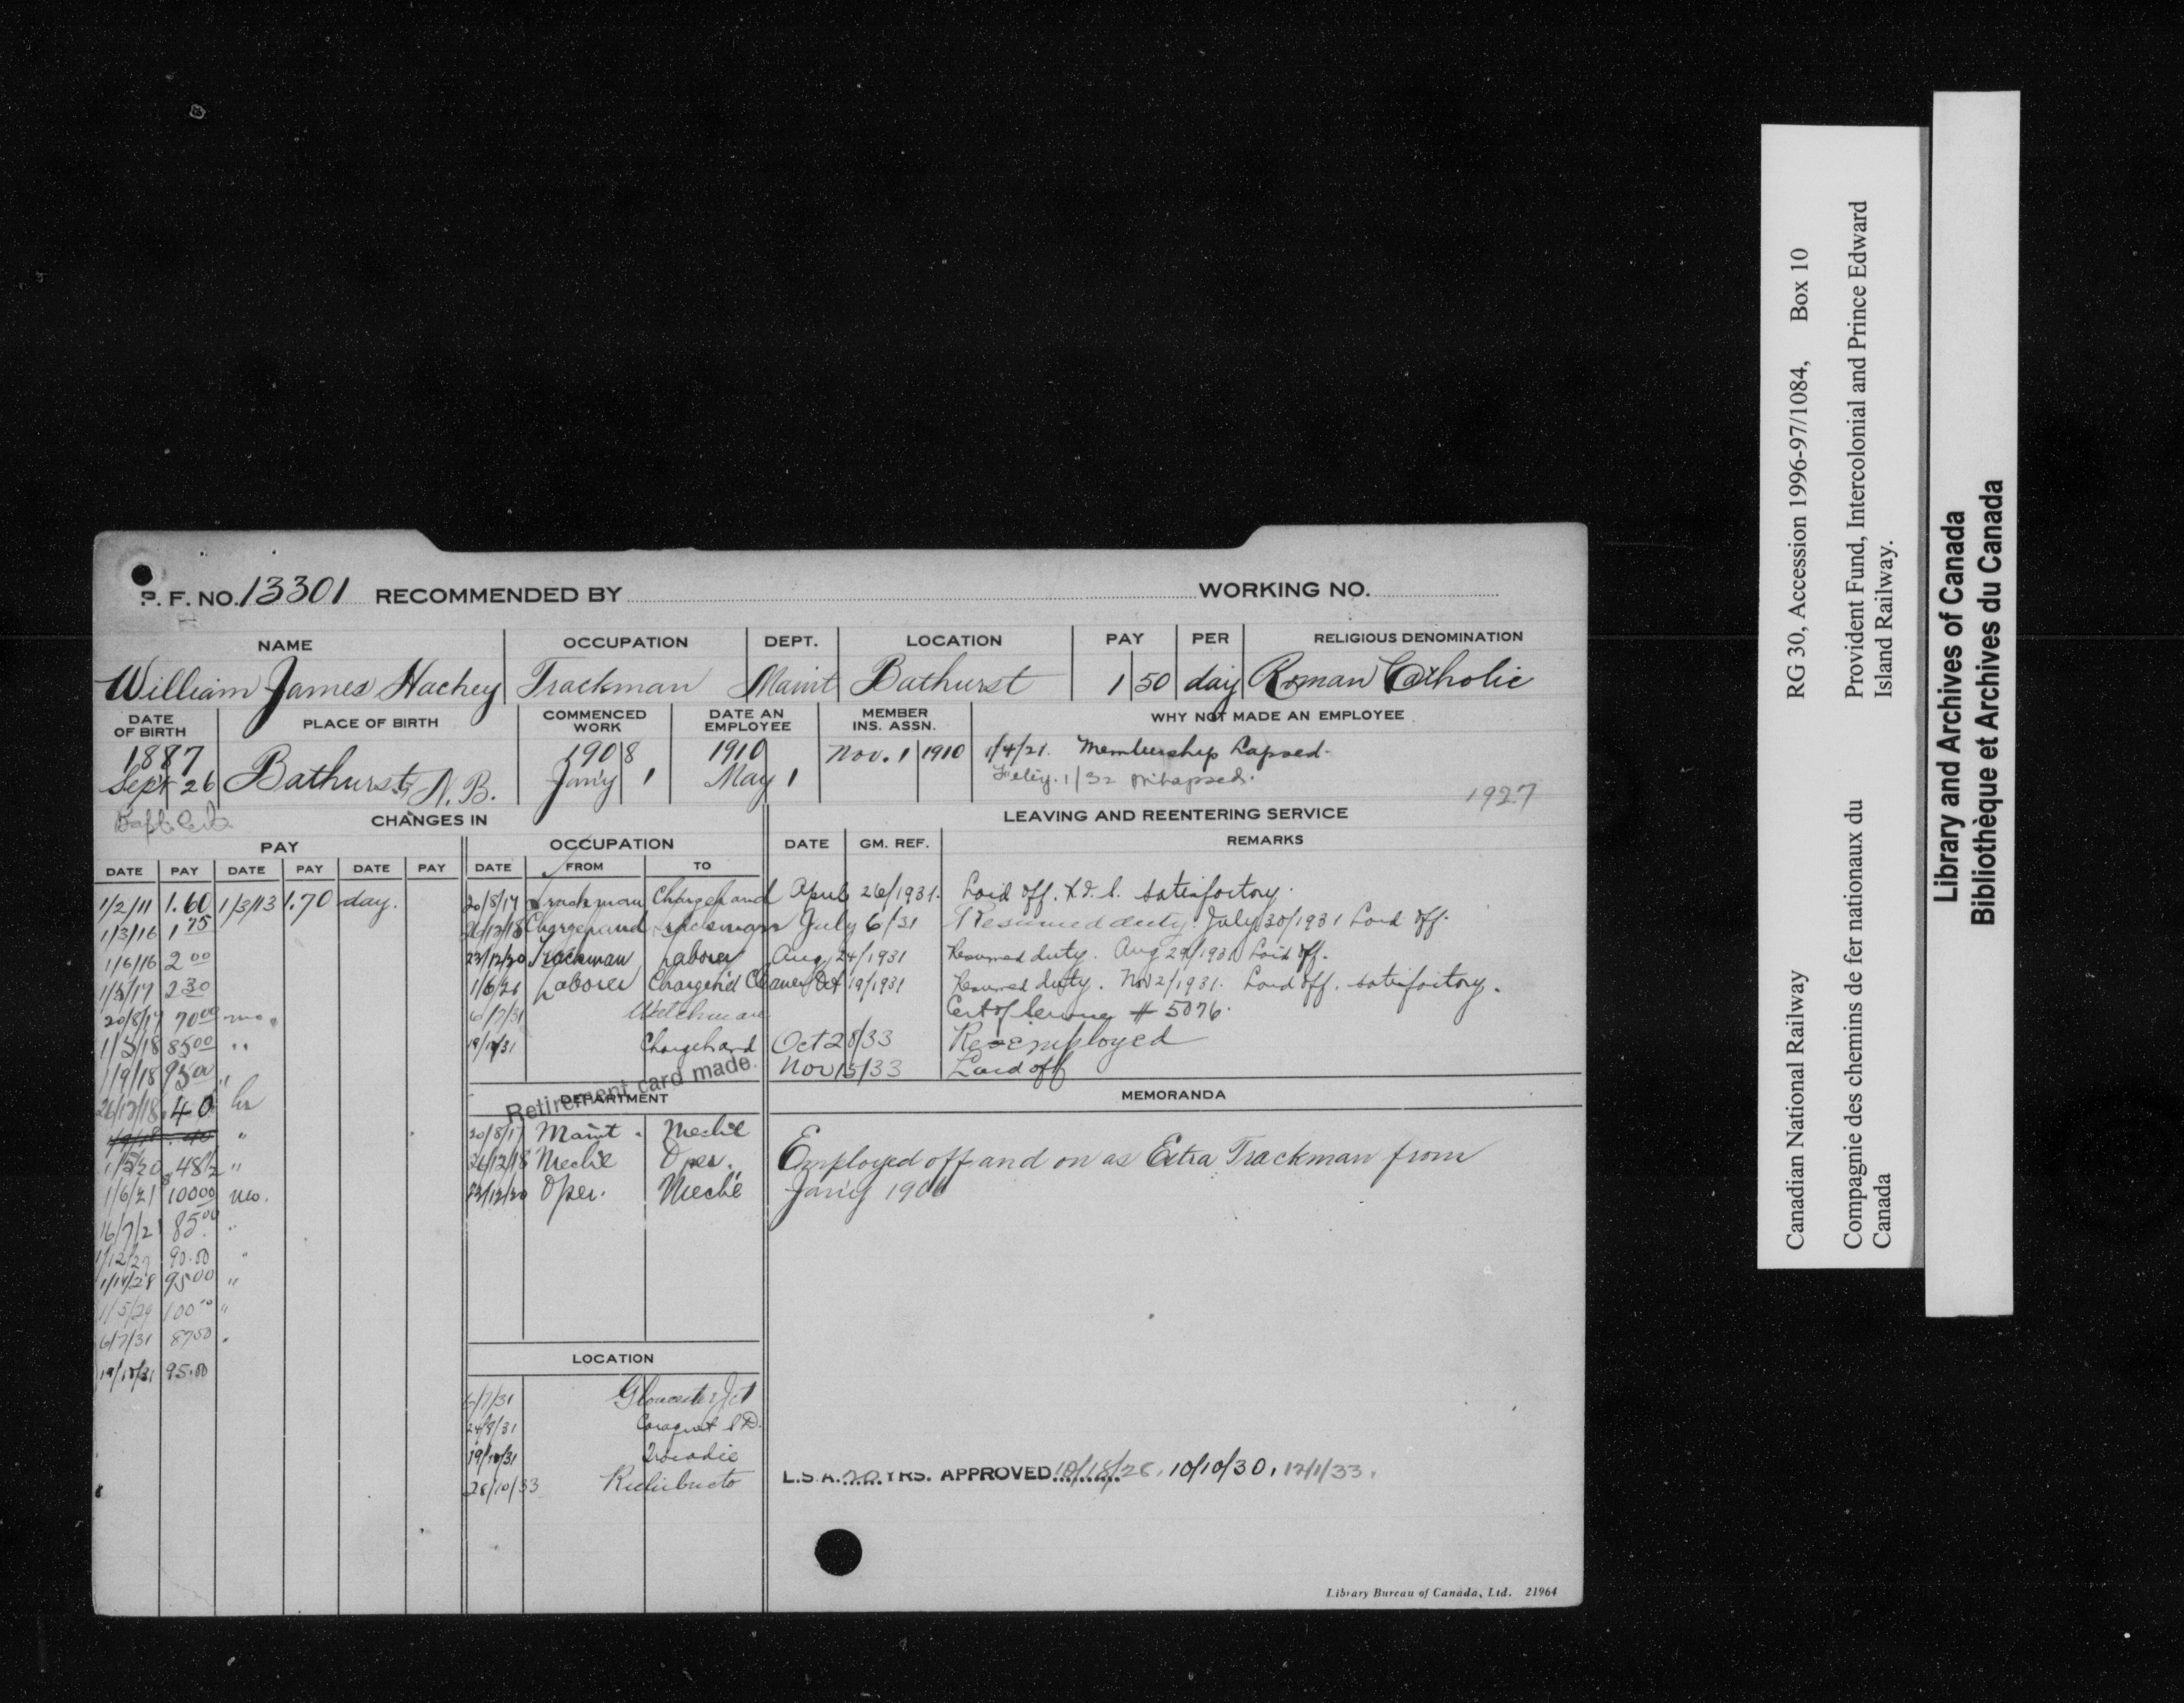 P. F. NO. 13301 RECOMMENDED BY WORKING NO.
NAME OCCUPATION DEPT. LOCATION PAY PER RELIGIOUS DENOMINATION
William James Hachey Trackman Maint Bathurst 1 50 day Roman Catholic
DATE OF BIRTH PLACE OF BIRTH COMMENCED WORK DATE AN EMPLOYEE MEMBER INS. ASSN. WHY NOT MADE AN EMPLOYEE
1887 1908 1910 Nov. 1 1910 1/4/21. Membership Lapsed.
Sept 26 Bathurst, N.B. Jan'y 1 May 1 1/32
1927
CHANGES IN LEAVING AND REENTERING SERVICE
PAY OCCUPATION DATE GM. REF. REMARKS
DATE PAY DATE PAY DATE PAY DATE FROM TO
1/2/11 1.60 1/3/13 1.70 day.
1/3/16 1 75
1/6/16 2 00
1/3/17 2 30
20/8/17 70 00 mo.
1/3/18 85 00 "
1/9/18 95 00 "
26/12/18 .40 hr
"
1/5/20 .48 1/2 "
1/6/21 100 00 mo.
16/7/21 85 00 "
1/12/27 90.00 "
95 00 "
1/5/29 100 00 "
6/7/31 87 50 "
19/10/31 95.00
20/8/17 Trackman Chargehand
26/12/18 Chargehand Trackman
23/12/20 Trackman Laborer
1/6/21 Laborer Chargeh'd Cleaner
6/7/31 Watchman
19/10/31 Chargehand
Retirement card made.
April 26/1931. Laid off. satisfactory.
July 6/31 Resumed duty. July 30/1931 Laid off.
Aug 24/1931 Resumed duty. Aug 29/1931 Laid off.
Oct 19/1931 Resumed duty. Nov 2/1931. Laid off. satisfactory.
Cert of Service # 5076.
Oct 28/33 Re-employed
Nov 15/33 Laid off
DEPARTMENT
20/8/17 Maint. Mech'l
26/12/18 Mech'l Oper.
23/12/20 Oper. Mech'l
MEMORANDA
Employed off and on as Extra Trackman from
Jan'y 1906
LOCATION
6/7/31 Gloucester Jct
24/8/31 Caraquet
19/10/31 Tracadie
28/10/33 Richibucto
L.S.A. 20 YRS. APPROVED 10/18/26, 10/10/30, 12/1/33.
Library Bureau of Canada, Ltd. 21964
Canadian National Railway RG 30, Accession 1996-97/1084, Box 10
Compagnie des chemins de fer nationaux du Provident Fund, Intercolonial and Prince Edward
Canada Island Railway.
Library and Archives of Canada
Bibliothèque et Archives du Canada